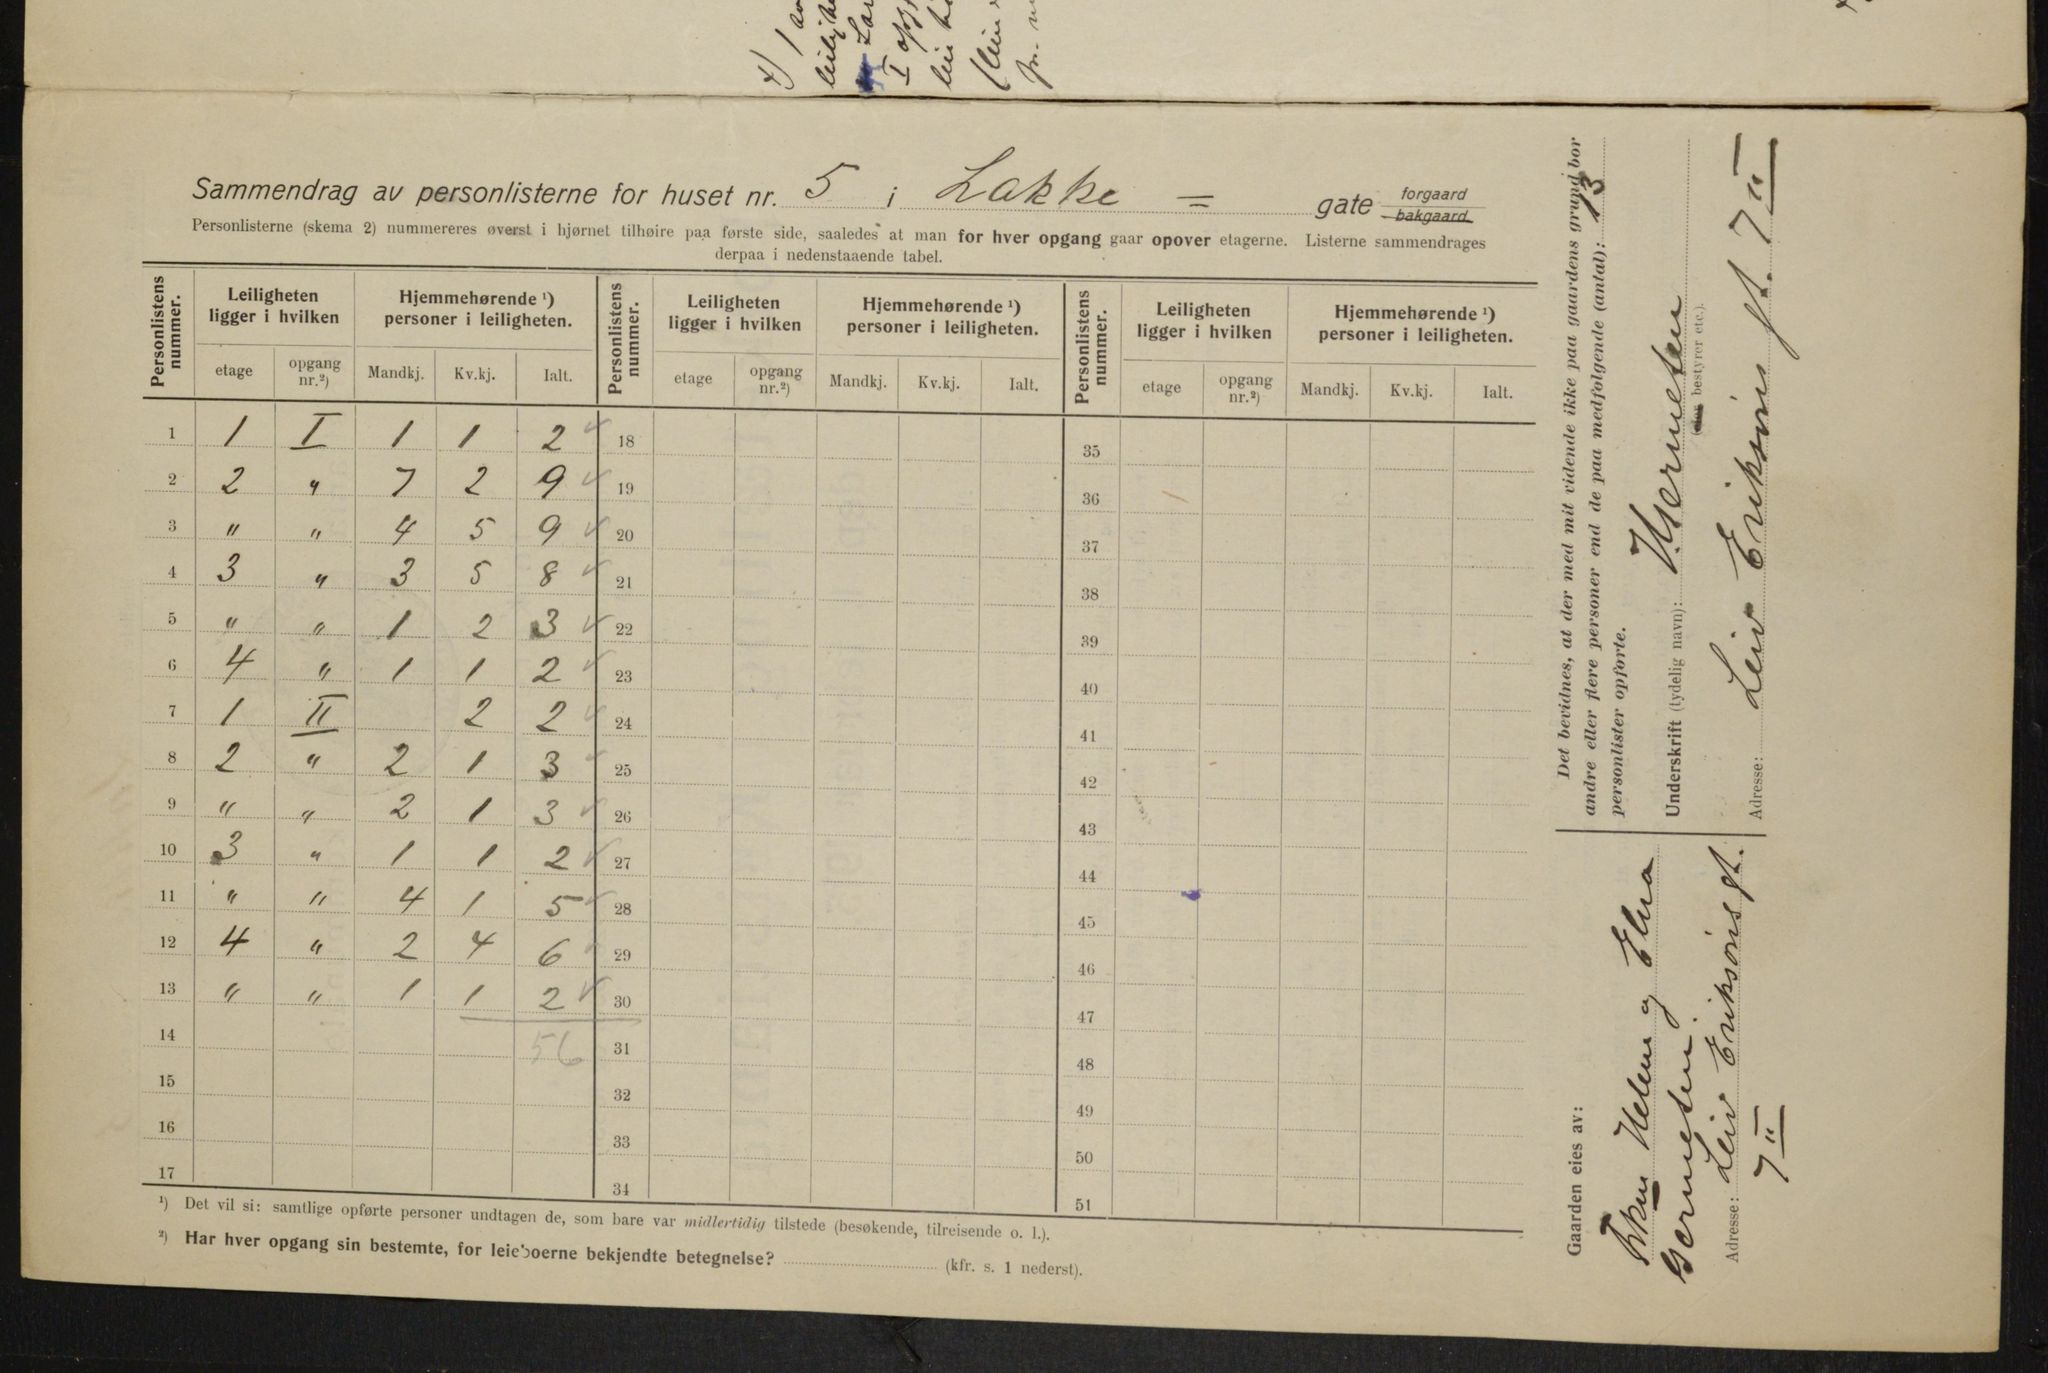 Sammendrag av personlisterne for huset nr. 5 i Lakke = gate forgaard bakgaard
Personlisterne (skema 2) nummereres øverst i hjørnet tilhøire paa første side, saaledes at man for hver opgang gaar opover etagerne. Listerne sammendrages
derpaa i nedenstaaende tabel.
Personlistens nummer. Leiligheten ligger i hvilken Hjemmehørende ¹) personer i leiligheten. Personlistens nummer. Leiligheten ligger i hvilken Hjemmehørende ¹) personer i leiligheten. Personlistens nummer. Leiligheten ligger i hvilken Hjemmehørende ¹) personer i leiligheten.
etage opgang nr.²) Mandkj. Kv.kj. Ialt. etage opgang nr.²) Mandkj. Kv.kj. Ialt. etage opgang nr.²) Mandkj. Kv.kj. Ialt.
1 1 I 1 1 2 18 35
2 2 " 7 2 9 19 36
3 " " 4 5 9 20 37
4 3 " 3 5 8 21 38
5 " " 1 2 3 22 39
6 4 " 1 1 2 23 40
7 1 II 2 2 24 41
8 2 " 2 1 3 25 42
9 " " 2 1 3 26 43
10 3 " 1 1 2 27 44
11 " " 4 1 5 28 45
12 4 " 2 4 6 29 46
13 " " 1 1 2 30 47
14 56 31 48
15 32 49
16 33 50
17 34 51
¹) Det vil si: samtlige opførte personer undtagen de, som bare var midlertidig tilstede (besøkende, tilreisende o. l.).
²) Har hver opgang sin bestemte, for leieboerne bekjendte betegnelse? (kfr. s. 1 nederst).
Det bevidnes, at der med mit vidende ikke paa gaardens grund bor
andre eller flere personer end de paa medfolgende (antal): 13
personlister opforte.
Underskrift (tydelig navn):
bestyrer etc.).
Adresse: Leiv Eriksöns gt. 7 II
Gaarden eies av:
Helen og Elna
Adresse: Leiv Eriksöns gt.
7 II